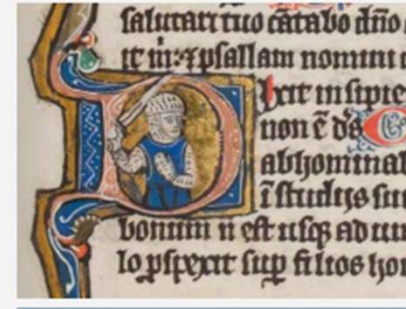 salutari tuo cātabo dño
et in: psallam nomini
Dixit insipie
non ē ds̄ C
abhominab
ī studijs su
bonum n̄ est usq̨ ad un
lo ꝑspexit sup̄ filios ho